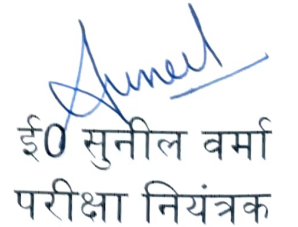 Suneel
ई0 सुनील वर्मा
परीक्षा नियंत्रक